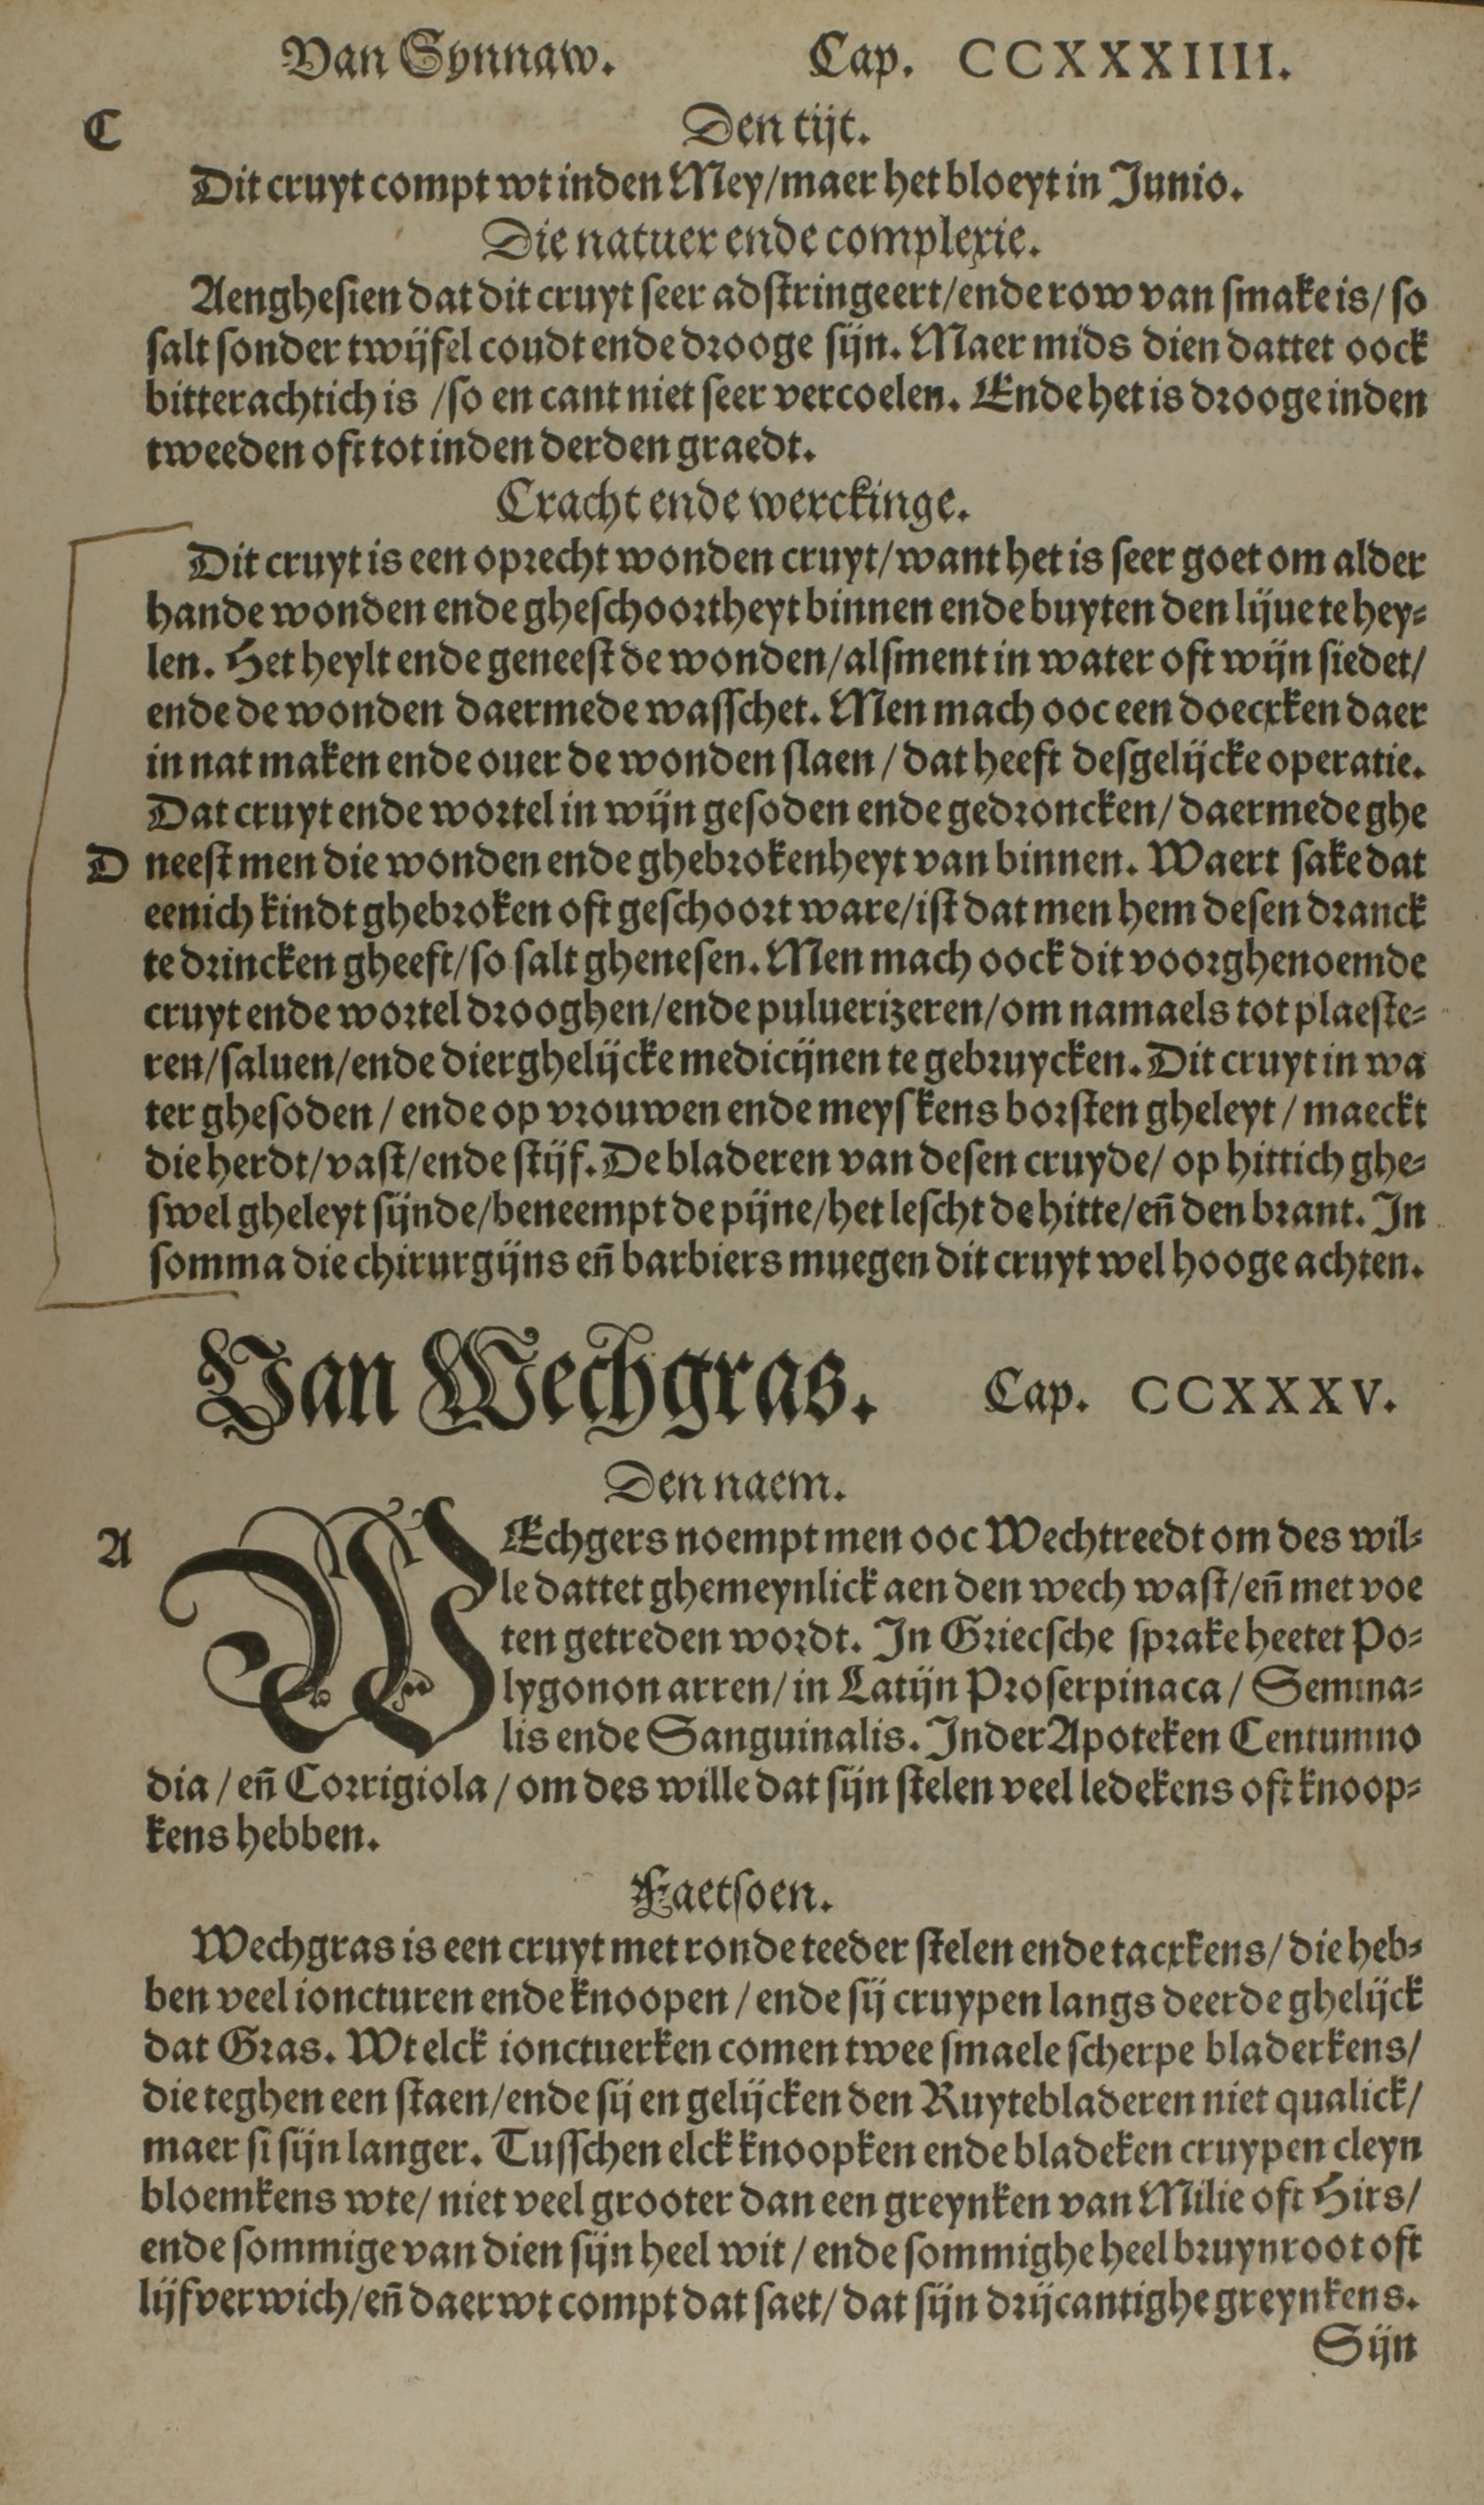 Van Synnaw. Cap. CCXXXIIII.
C Den tijt.
Dit cruyt compt wt inden Mey/maer het bloeyt in Junio.
Die natuer ende complexie.
Aenghesien dat dit cruyt seer adstringeert/ende row van smake is/ so
salt sonder twijfel coudt ende drooge sijn. Maer mids dien dattet oock
bitterachtich is /so en cant niet seer vercoelen. Ende het is drooge inden
tweeden oft tot inden derden graedt.
Cracht ende werckinge.
Dit cruyt is een oprecht wonden cruyt/want het is seer goet om alder
hande wonden ende gheschoortheyt binnen ende buyten den lijue te hey-
len. Het heylt ende geneest de wonden/alsment in water oft wijn siedet/
ende de wonden daermede wasschet. Men mach ooc een doecxken daer
in nat maken ende ouer de wonden slaen / dat heeft desgelijcke operatie.
Dat cruyt ende wortel in wijn gesoden ende gedroncken/ daermede ghe
D neest men die wonden ende ghebrokenheyt van binnen. Waert sake dat
eenich kindt ghebroken oft geschoort ware/ist dat men hem desen dranck
te drincken gheeft/so salt ghenesen. Men mach oock dit voorghenoemde
cruyt ende wortel drooghen/ende puluerizeren/om namaels tot plaeste-
ren/saluen/ende dierghelijcke medicijnen te gebruycken. Dit cruyt in wa
ter ghesoden / ende op vrouwen ende meyskens borsten gheleyt / maeckt
die herdt/vast/ende stijf. De bladeren van desen cruyde/ op hittich ghe-
swel gheleyt sijnde/beneempt de pijne/het lescht de hitte/eñ den brant. In
somma die chirurgijns eñ barbiers muegen dit cruyt wel hooge achten.
Van Wechgras. Cap. CCXXXV.
Den naem.
A WEchgers noempt men ooc Wechtreedt om des wil-
le dattet ghemeynlick aen den wech wast/eñ met voe
ten getreden wordt. In Griecsche sprake heetet Po-
lygonon arren/in Latijn Proserpinaca/ Semina-
lis ende Sanguinalis. In der Apoteken Centumno
dia / eñ Corrigiola / om des wille dat sijn stelen veel ledekens oft knoop-
kens hebben.
Faetsoen.
Wechgras is een cruyt met ronde teeder stelen ende tacxkens/ die heb-
ben veel ioncturen ende knoopen / ende sij cruypen langs deerde ghelijck
dat Gras. Wt elck ionctuerken comen twee smaele scherpe bladerkens/
die teghen een staen/ende sij en gelijcken den Ruytebladeren niet qualick/
maer si sijn langer. Tusschen elck knoopken ende bladeken cruypen cleyn
bloemkens wte/ niet veel grooter dan een greynken van Milie oft Hirs/
ende sommige van dien sijn heel wit / ende sommighe heel bruynroot oft
lijfverwich/eñ daer wt compt dat saet/ dat sijn drijcantighe greynkens.
Sijn